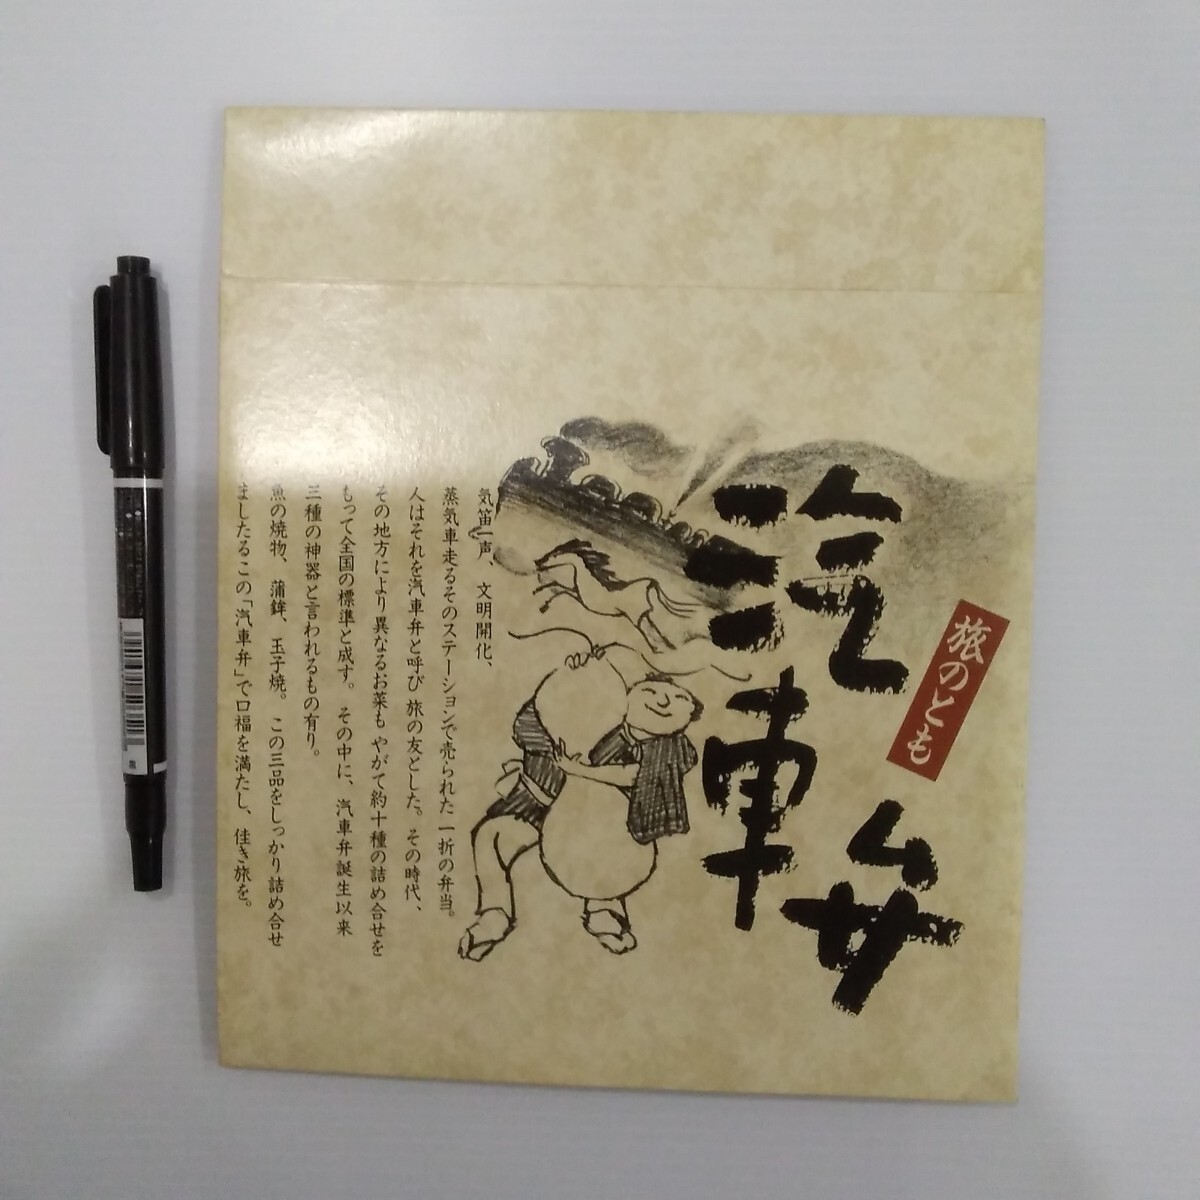 旅のとも
汽車弁
気笛一声、文明開化、
蒸気車走るそのステーションで売られた一折の弁当。
人はそれを汽車弁と呼び旅の友とした。その時代、
その地方により異なるお菜も やがて約十種の詰め合せを
もって全国の標準と成す。その中に、汽車弁誕生以来
三種の神器と言われるもの有り。
魚の焼物、蒲鉾、玉子焼。この三品をしっかり詰め合せ
ましたるこの「汽車弁」で口福を満たし、佳き旅を。